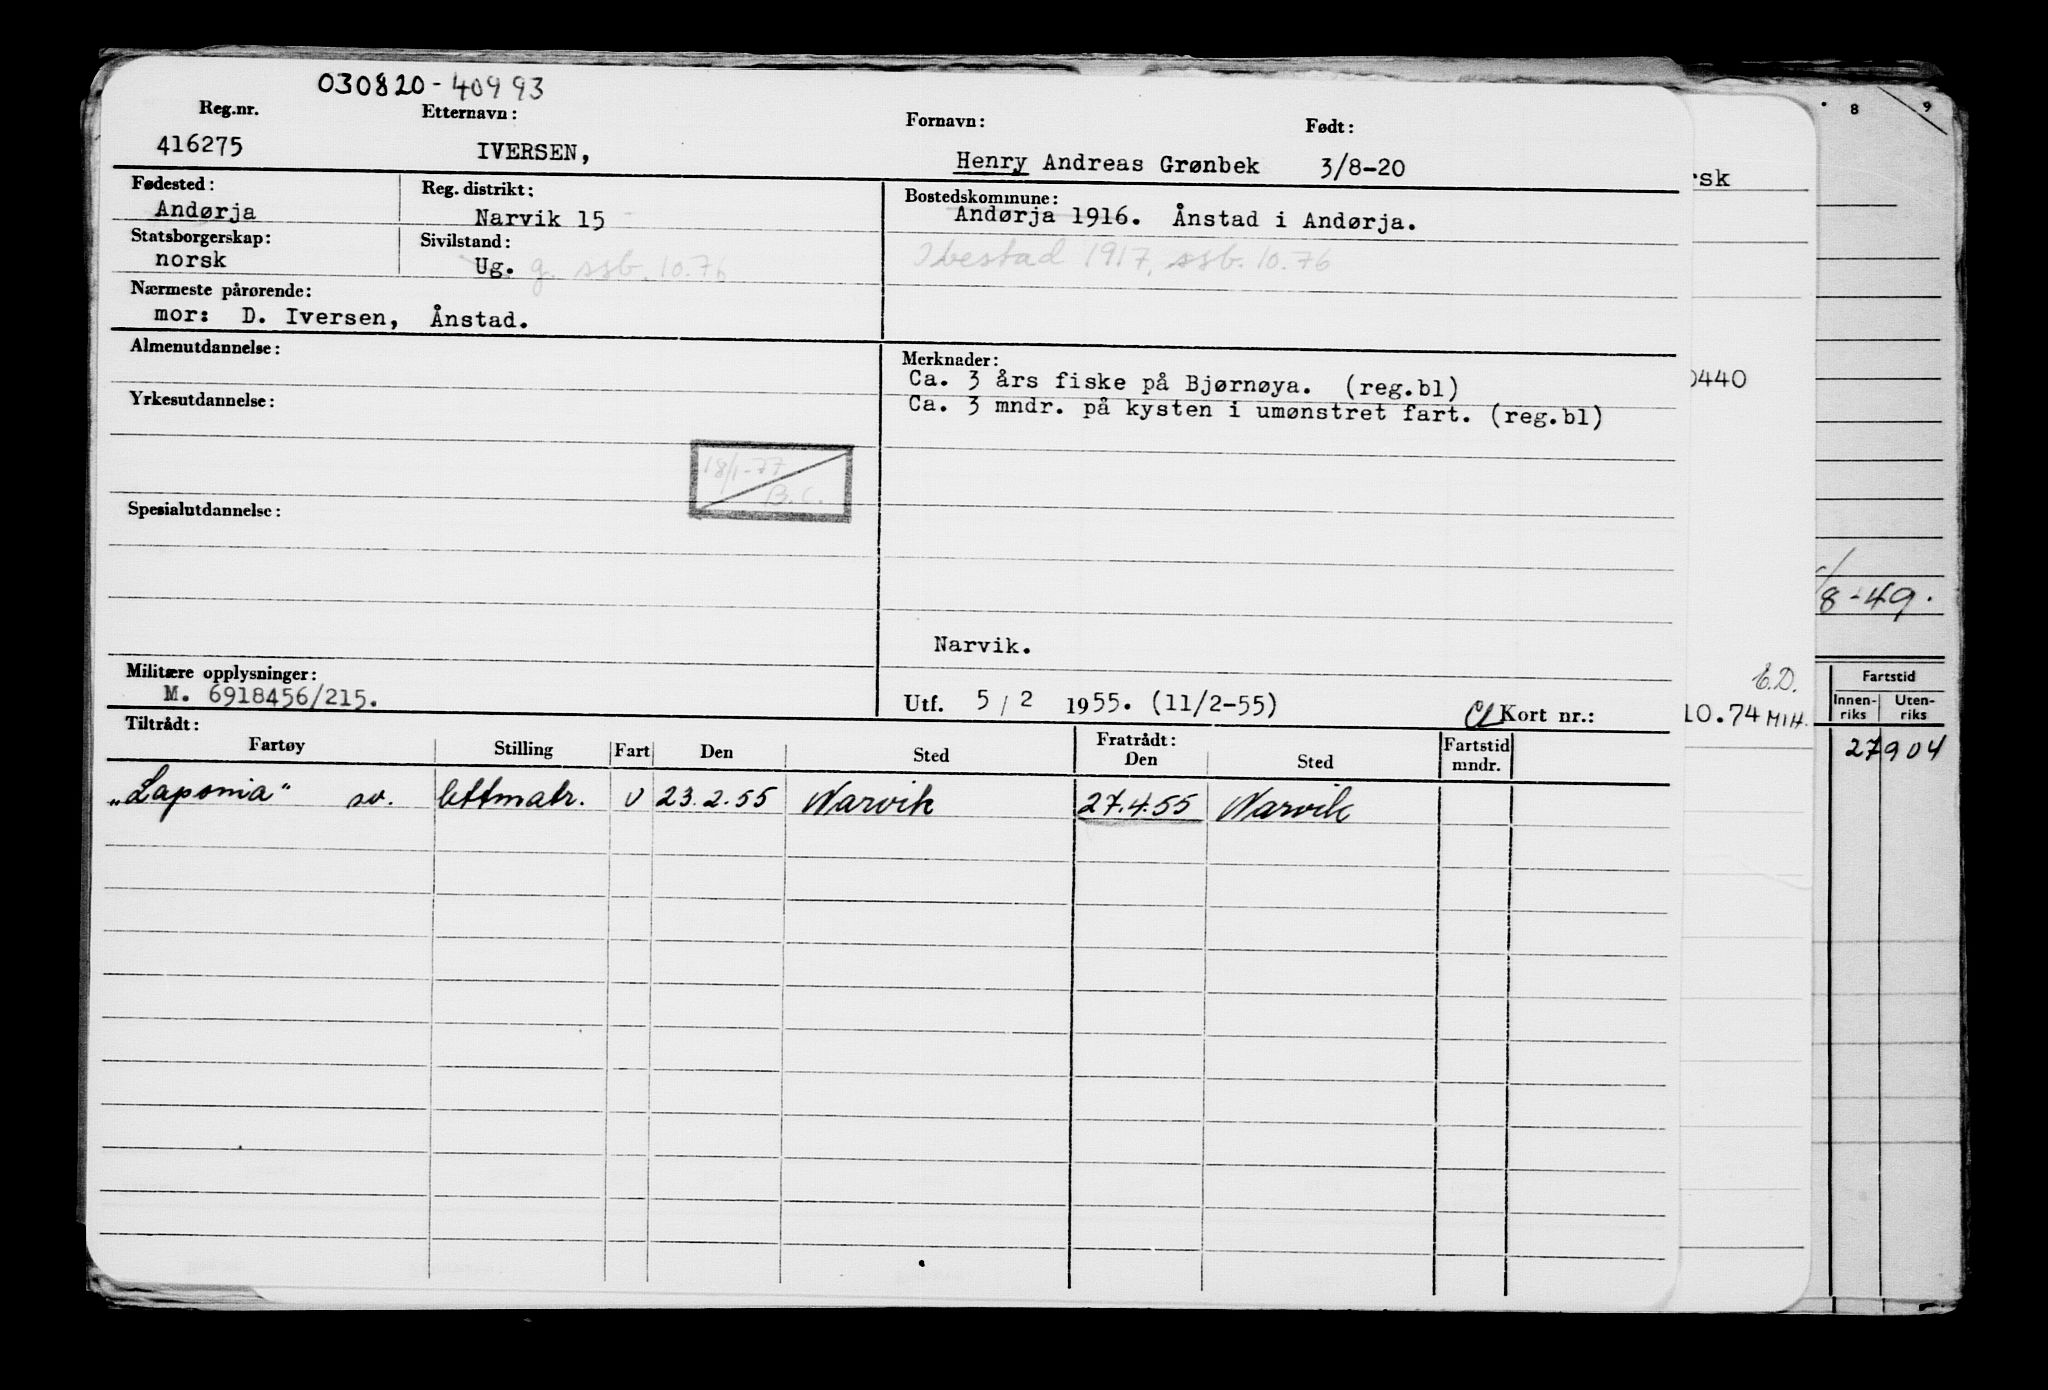 030820-40993
Reg.nr. Etternavn: Fornavn: Født:
416275 IVERSEN, Henry Andreas Grønbek 3/8-20
Fødested: Reg. distrikt: Bostedskommune:
Andørja Narvik 15 Andørja 1916. Ånstad i Andørja.
Statsborgerskap: Sivilstand: Ibestad 1917, ssb. 10.76
norsk Ug. g. ssb. 10.76
Nærmeste pårørende:
mor: D. Iversen, Ånstad.
Almenutdannelse: Merknader:
Ca. 3 års fiske på Bjørnøya. (reg.bl)
Yrkesutdannelse: Ca. 3 mndr. på kysten i umønstret fart. (reg.bl)
18/1-77
B.C.
Spesialutdannelse:
Narvik.
Militære opplysninger:
M. 6918456/215. Utf. 5/2 1955. (11/2-55) Kort nr.:
Tiltrådt: Fratrådt:
Fartøy Stilling Fart Den Sted Den Sted Fartstid mndr.
"Laponia" sv. lettmatr. U 23.2.55 Narvik 27.4.55 Narvik
rsk
0440
E.D.
10.74 MIH.
8 9
/8-49.
Fartstid
Innen-riks Uten-riks
27904